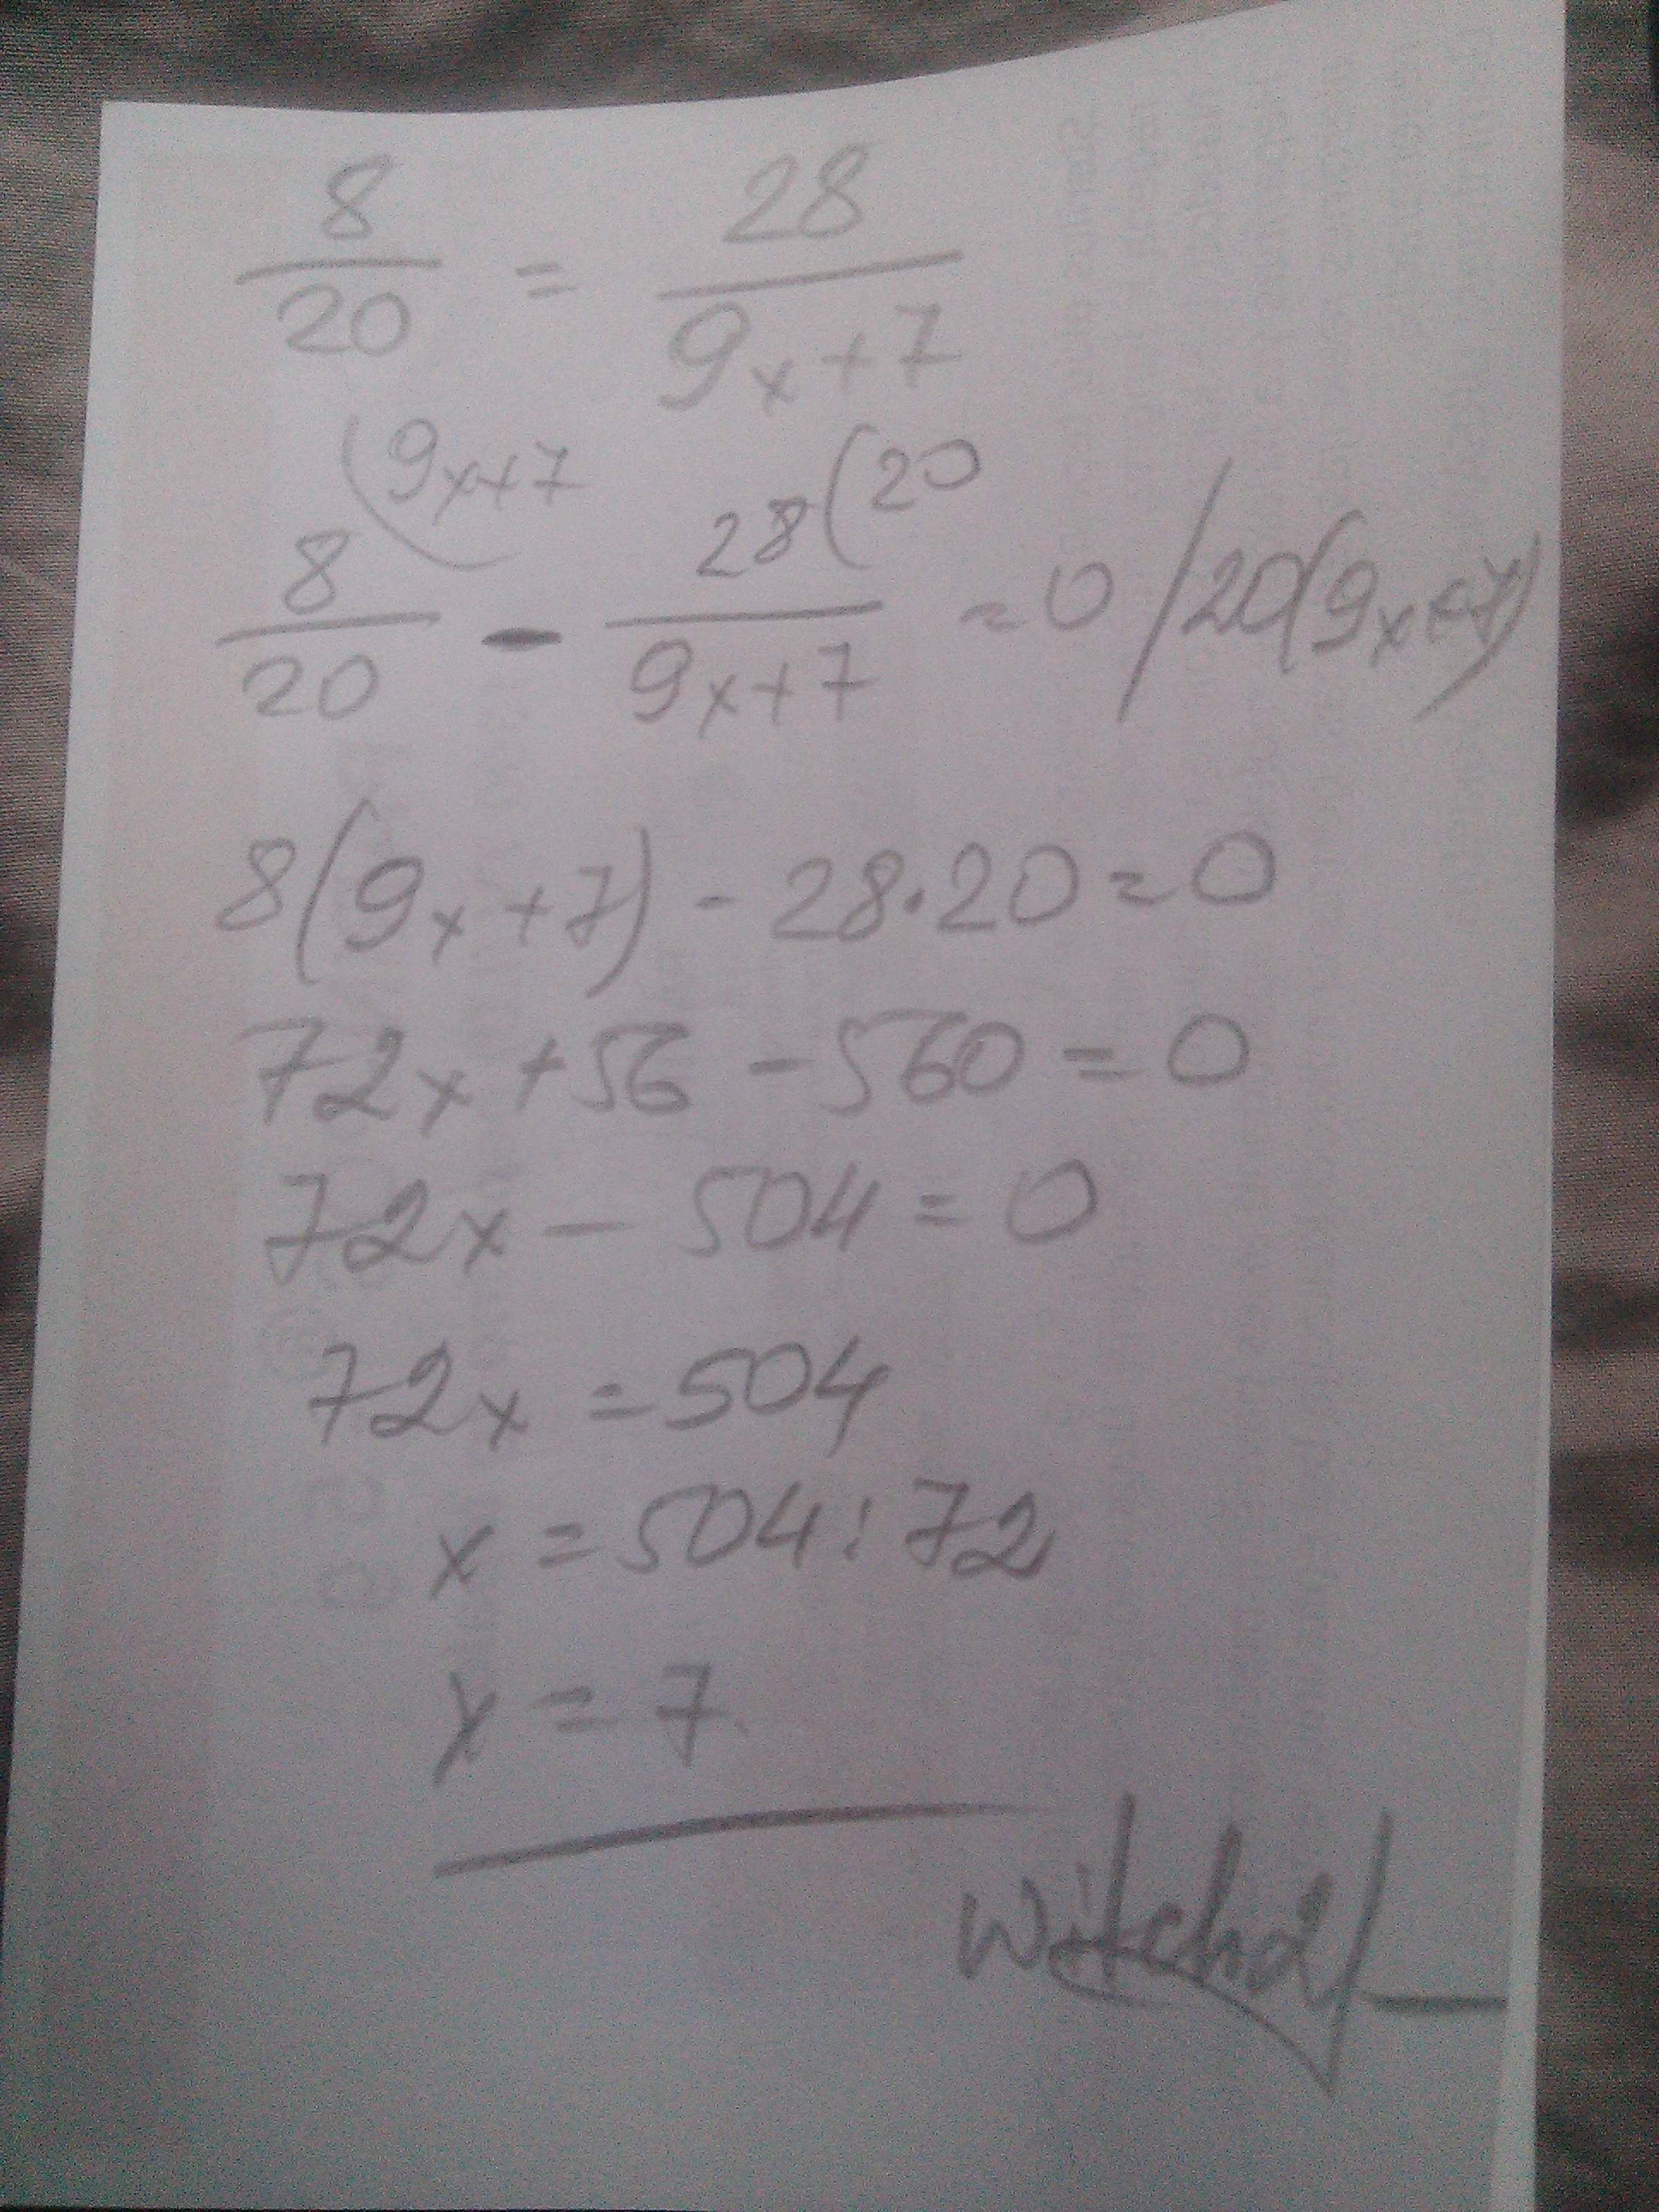 8/20 = 28/9x+7
(9x+7 (20
8/20 - 28/9x+7 = 0 /20(9x+7)
8(9x+7) - 28·20 = 0
72x + 56 - 560 = 0
72x - 504 = 0
72x = 504
x = 504 : 72
x = 7